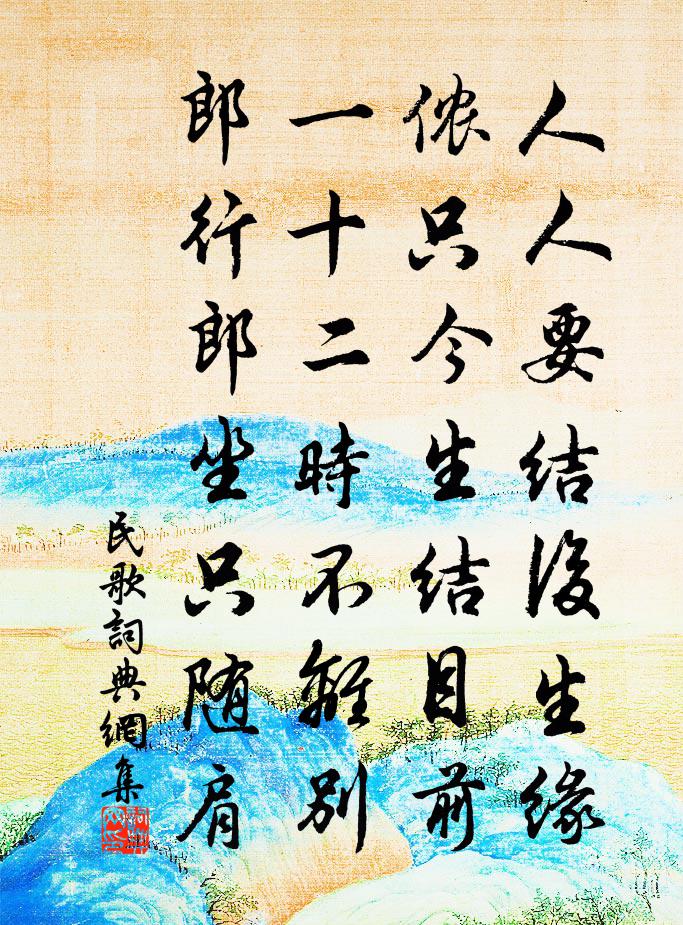 人人要结後生缘
侬只今生结目前
一十二時不離别
郎行郎坐只随肩
民歌詞典網集